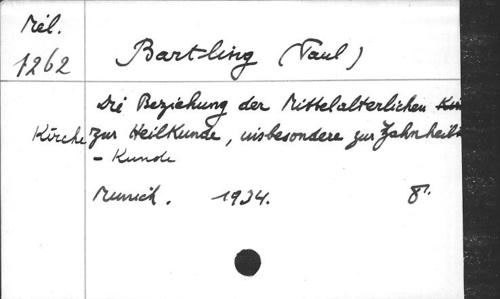 Mél.
1262
Bartling (Paul)
Die Beziehung der Mittelalterlichen
Kirche zur Heilkunde, insbesondere zur Zahnheil
- Kunde
Munich. 1934. 8°.